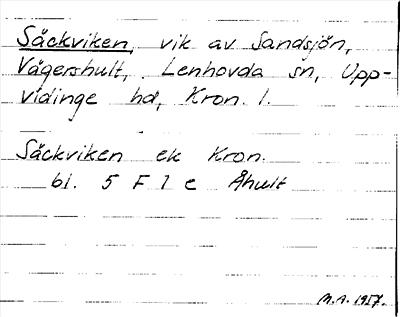 Säckviken, vik av Sandsjön,
Vägershult, Lenhovda sn, Upp-
vidinge hd, Kron. l.
Säckviken ek Kron.
bl. 5 F 1 c Åhult
M.A. 1957.